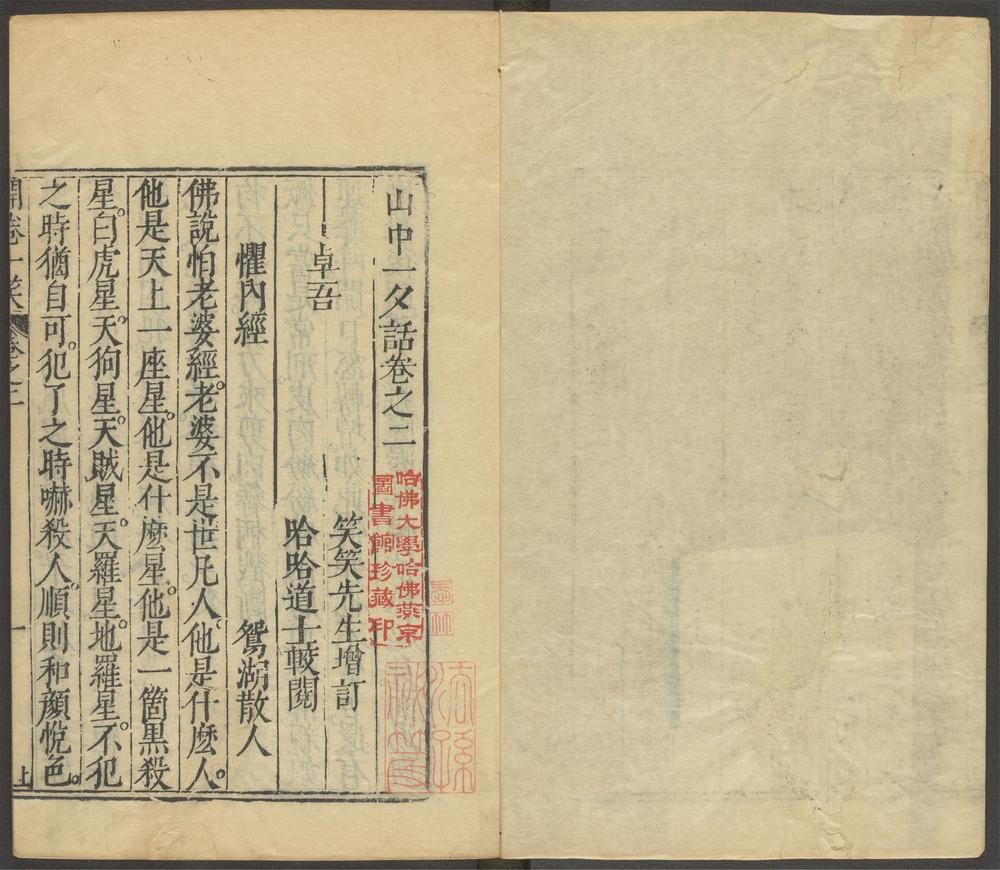 山中一夕話卷之二
卓吾
笑笑先生增訂
哈哈道士較閱
懼內經　鴛湖散人
佛說怕老婆經。老婆不是世凡人。他是什麽人。
他是天上一座星。他是什麽星。他是一箇黑殺
星。白虎星。天狗星。天賊星。天羅星。地羅星。不犯
之時猶自可。犯了之時嚇殺人。順則和顏悅色。
開卷一笑　卷之二　一　上
哈佛大學哈佛燕京
圖書館珍藏印